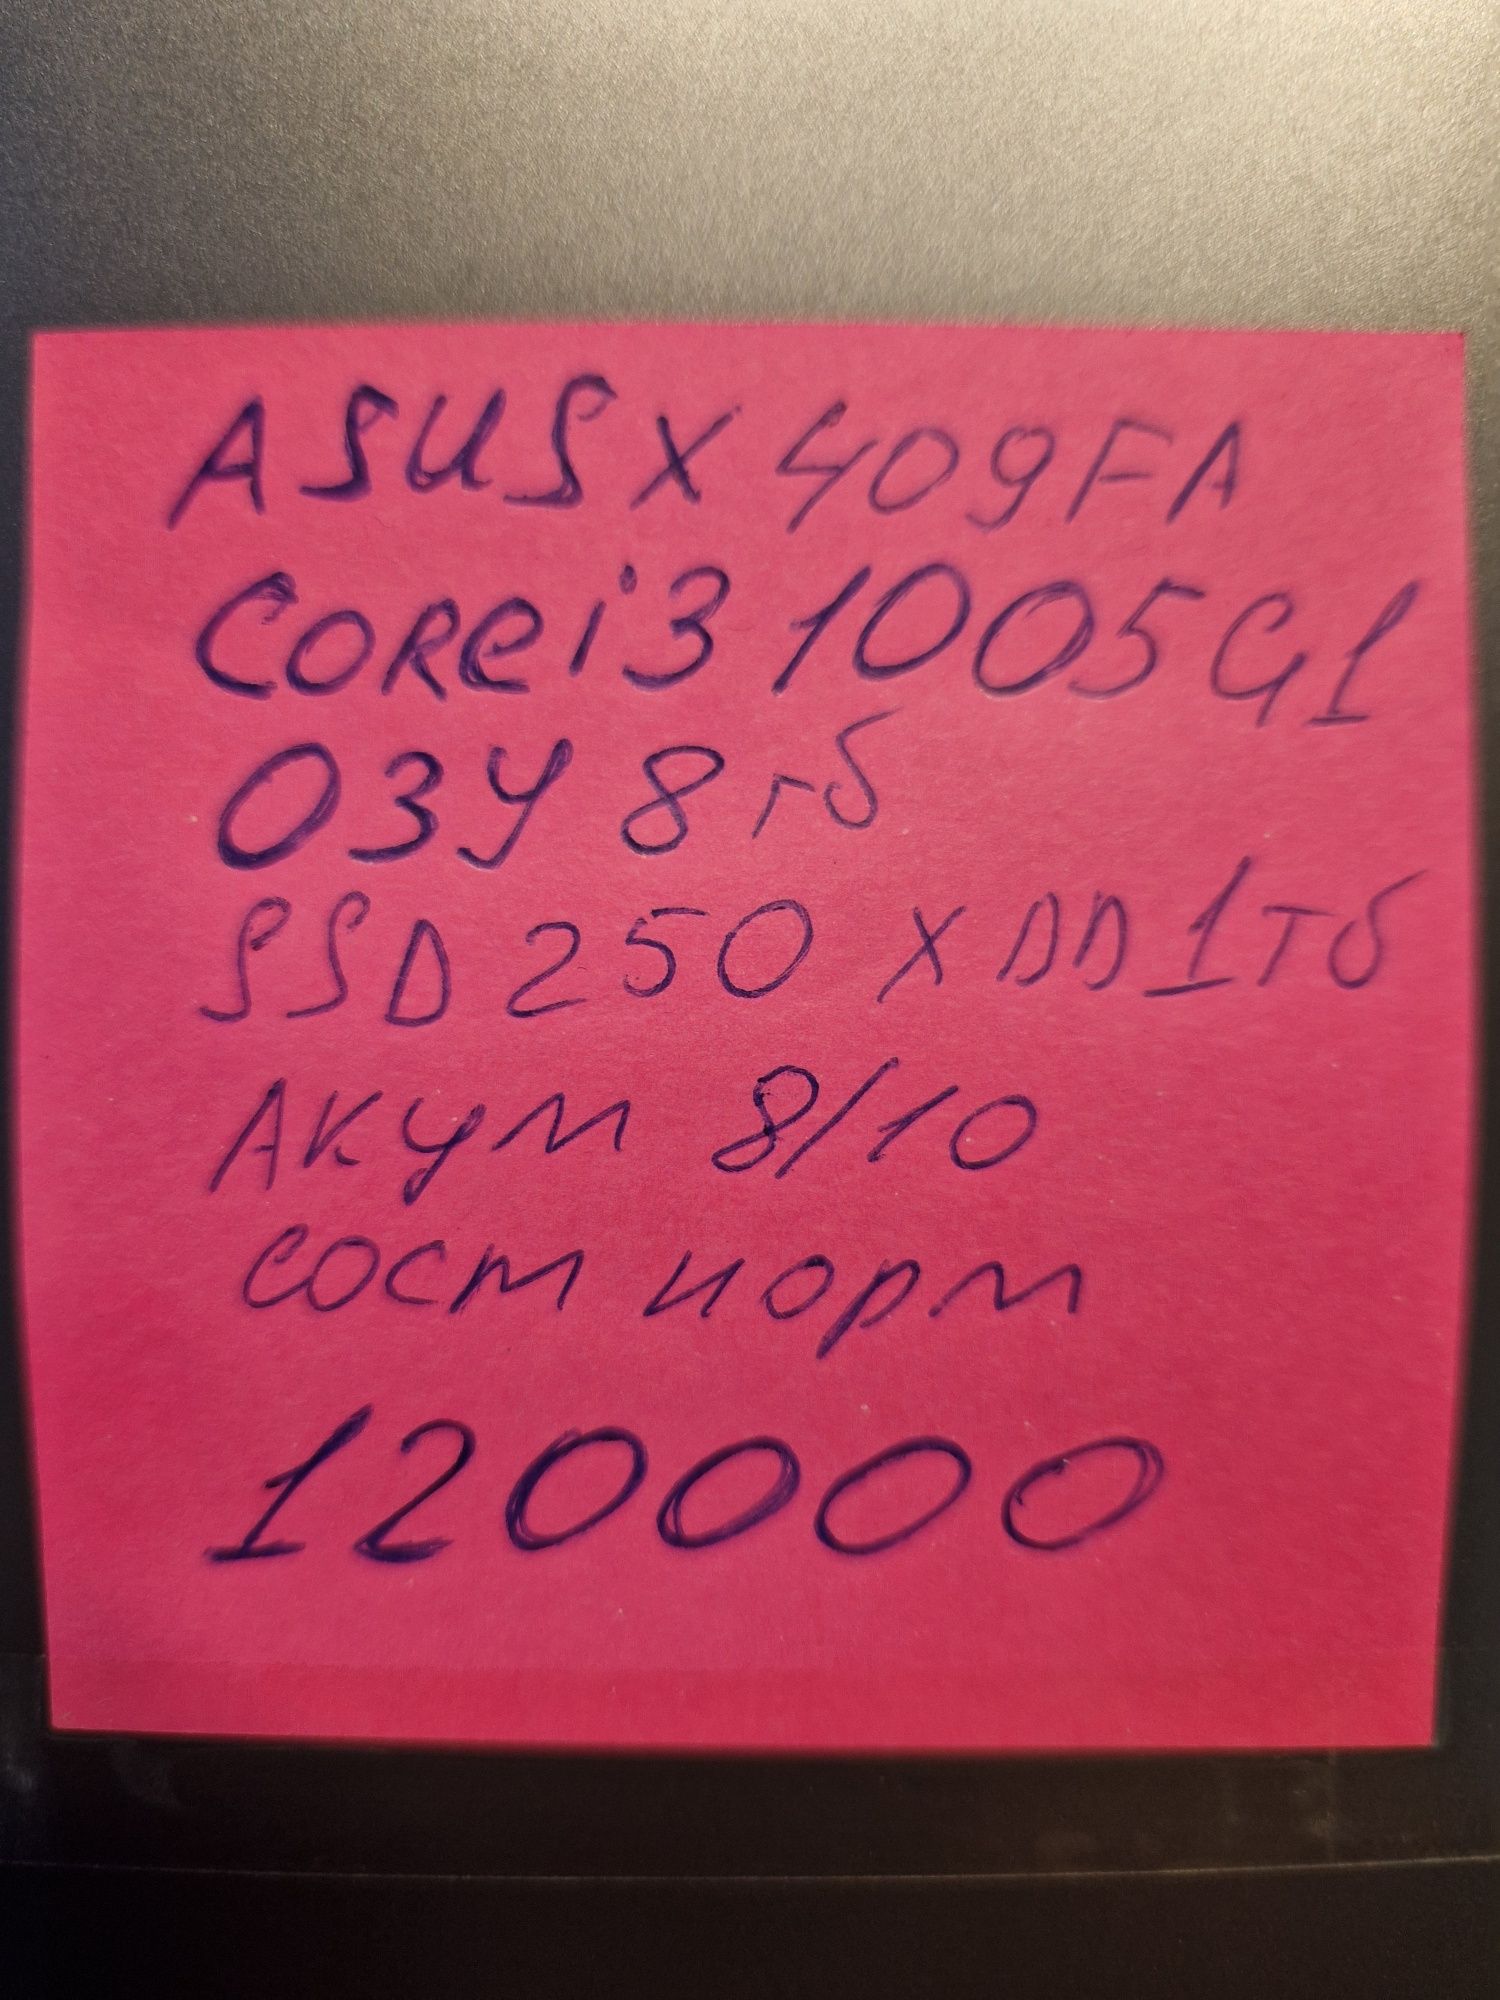 ASUS X 409FA
Core i3 1005G1
ОЗУ 8 гб
SSD 250 XDD 1Тб
Акум 8/10
сост норм
120000